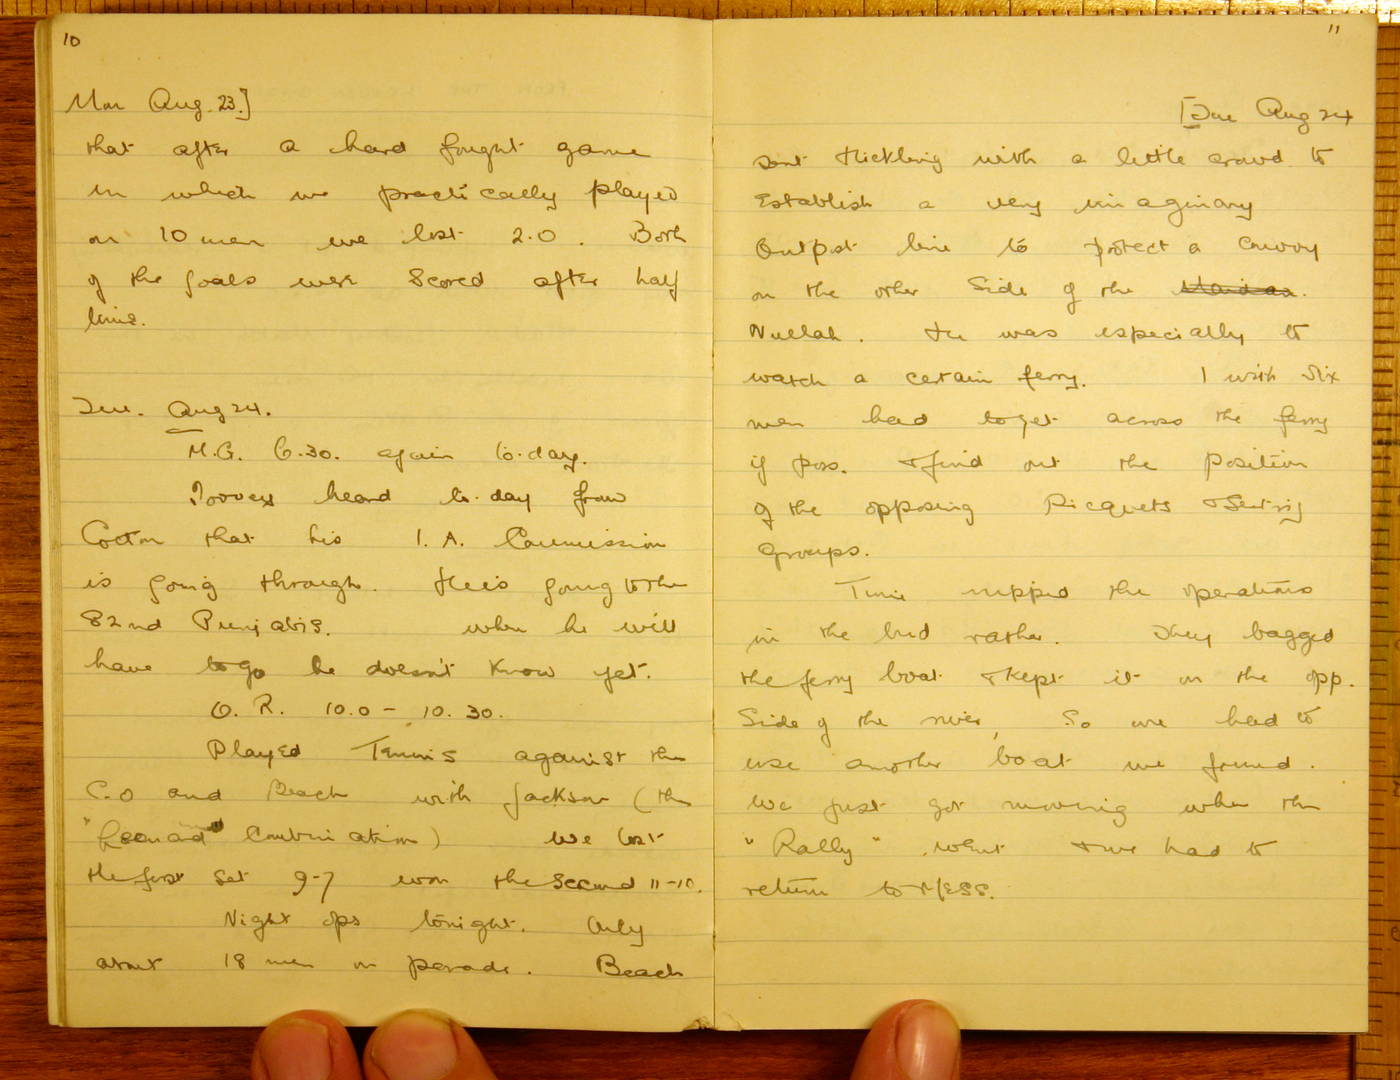 10
Mon Aug. 23.]
that after a hard fought game
in which we practically played
on 10 men we lost 2.0. Both
of the goals were scored after half
time.
Tue. Aug 24.
M.G. 6.30. again to-day.
heard to-day from
Cotton that his I.A. Commission
is going through. He is going to the
82nd Punjabis. when he will
have to go he doesn't know yet.
O.R. 10.0 - 10.30.
Played Tennis against the
C.O and Beach with Jackson (the
"Leonard" Combination) we lost
the first set 9-7 won the second 11-10.
Night ops tonight. Only
about 18 men on parade. Beach
11
[Tue Aug 24
sent Hickling with a little crowd to
Establish a very imaginary
Outpost line to protect a convoy
on the other side of the Maidan.
Nullah. He was especially to
watch a certain ferry. I with six
men had to get across the ferry
if poss. & find out the position
of the opposing Picquets & Sentry
groups.
Time nipped the operations
in the bud rather. They bagged
the ferry boat & kept it on the opp.
Side of the river, So we had to
use another boat we found.
We just got moving when the
"Rally" went & we had to
return to MESS.